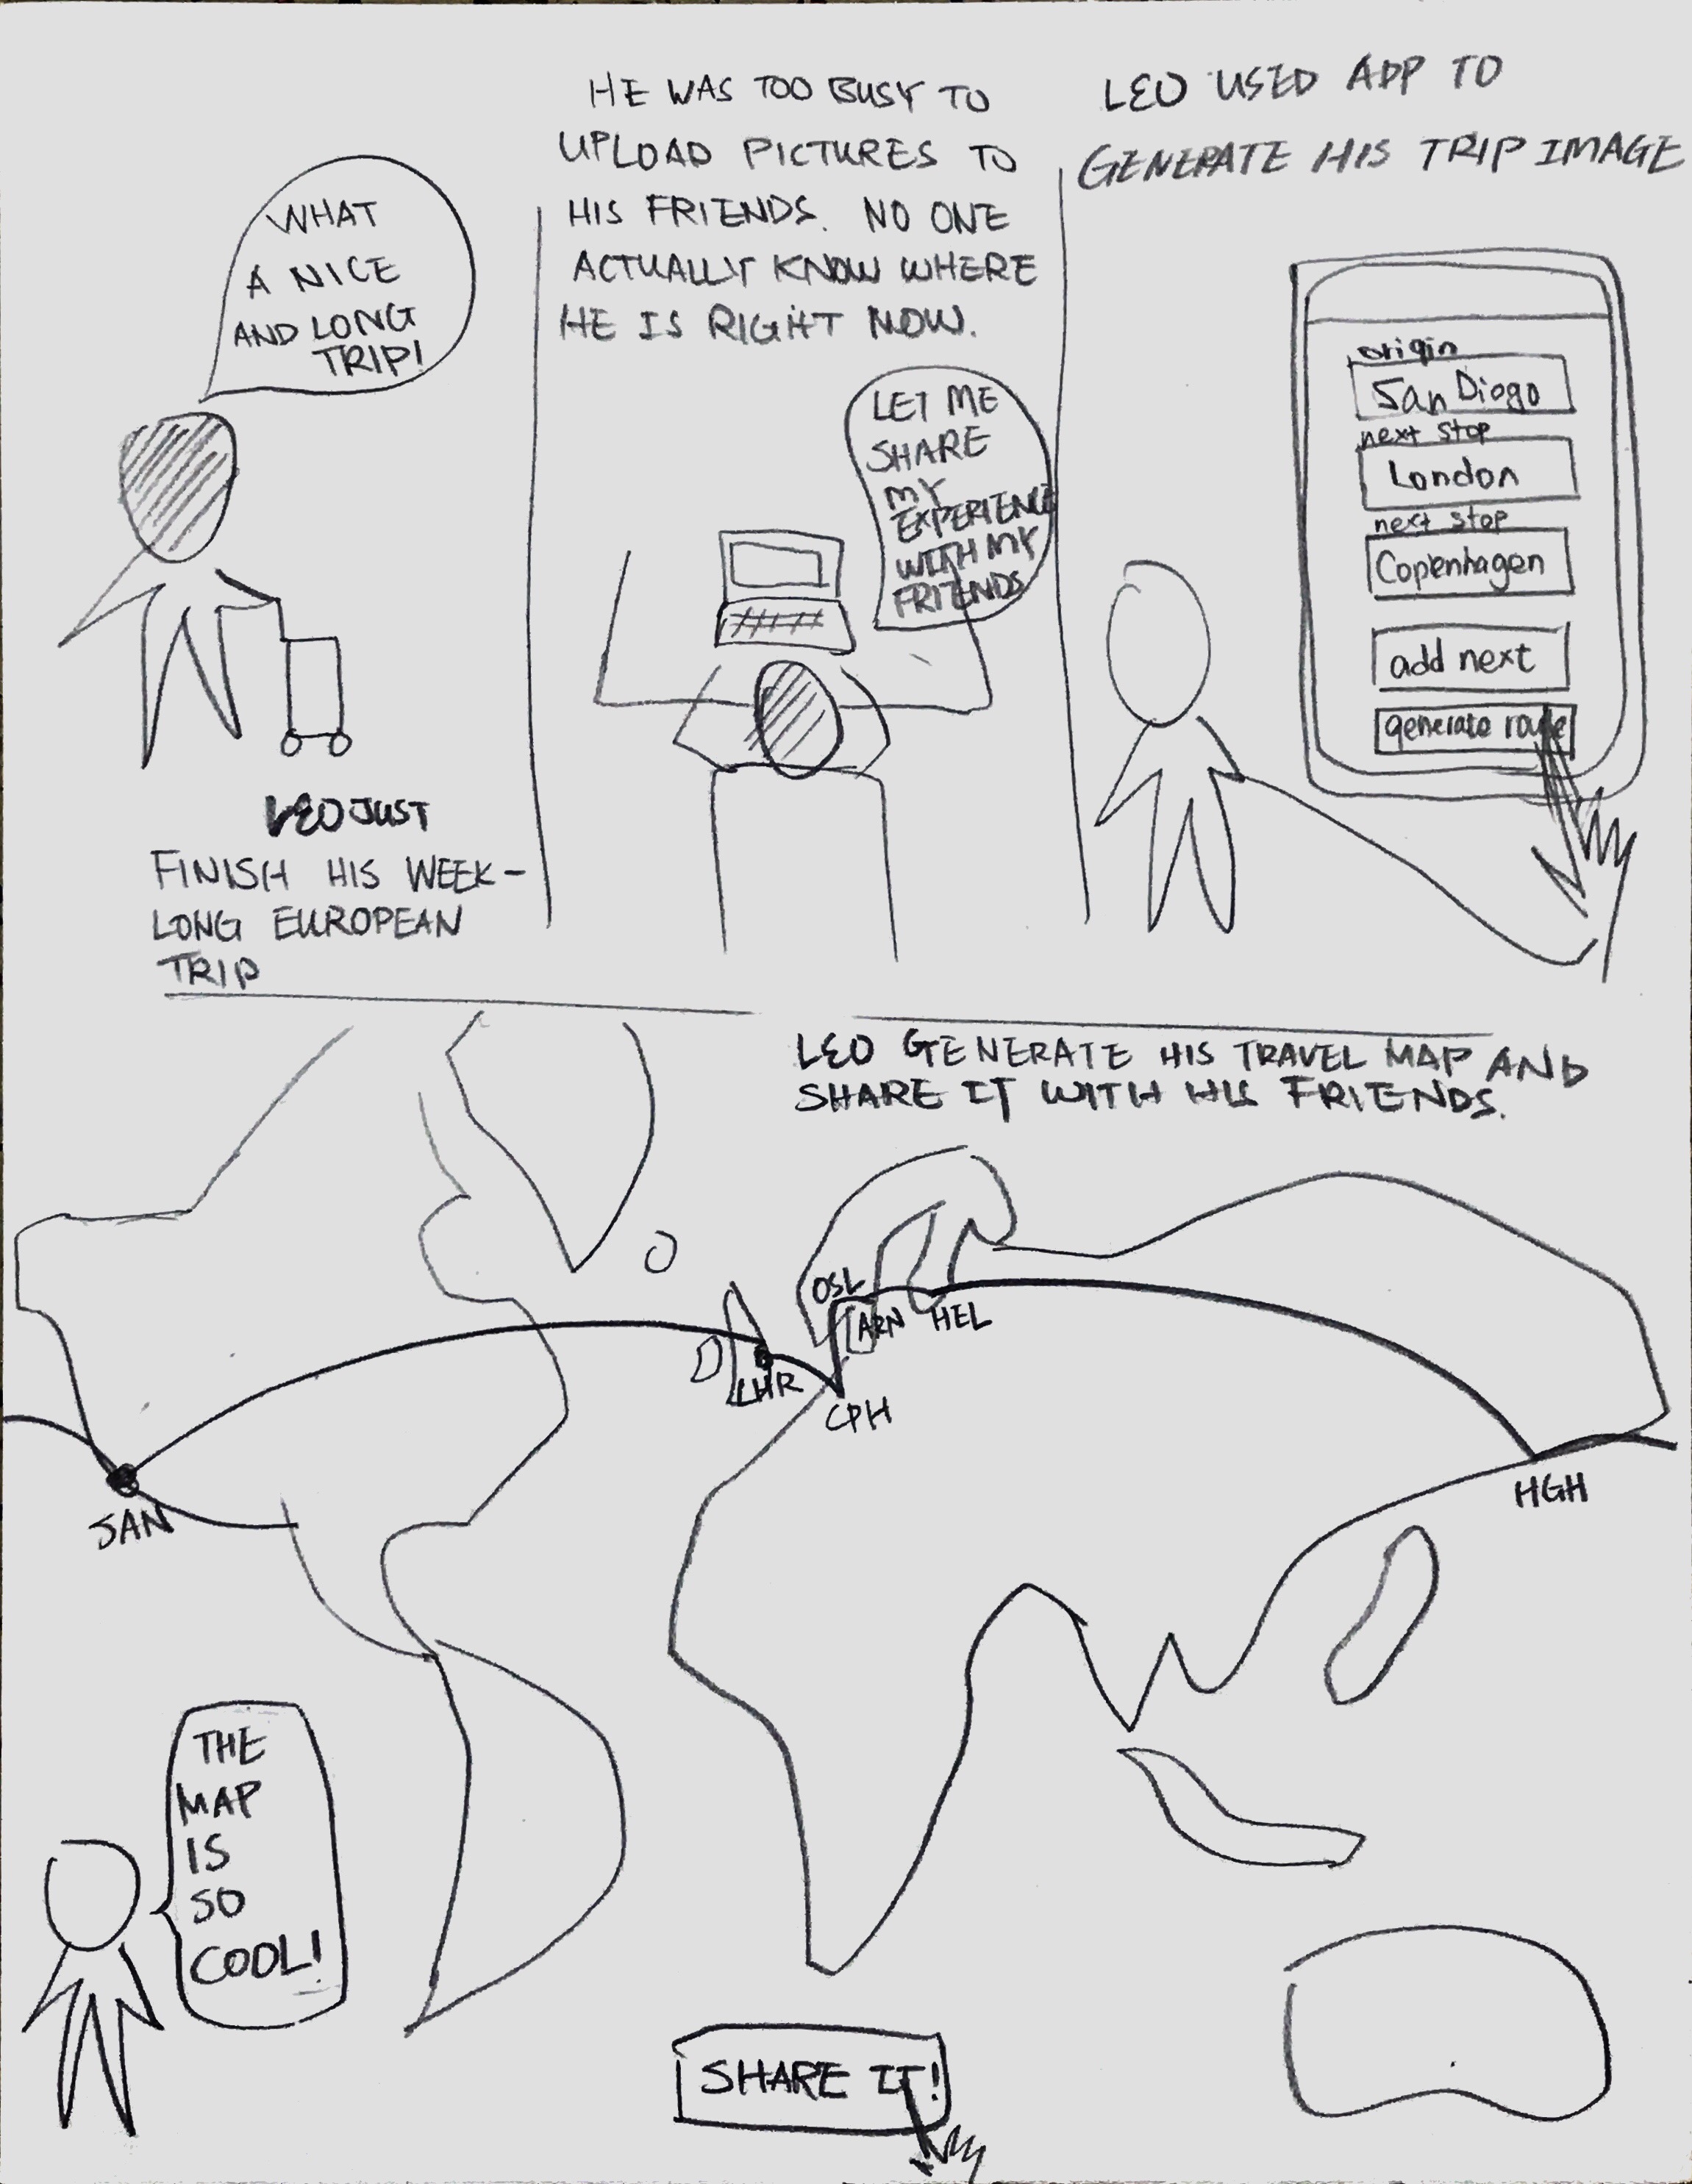 WHAT
A NICE
AND LONG
TRIP!
LEO JUST
FINISH HIS WEEK-
LONG EUROPEAN
TRIP
HE WAS TOO BUSY TO
UPLOAD PICTURES TO
HIS FRIENDS. NO ONE
ACTUALLY KNOW WHERE
HE IS RIGHT NOW.
LET ME
SHARE
MY
EXPERIENCE
WITH MY
FRIENDS
LEO USED APP TO
GENERATE HIS TRIP IMAGE
origin
San Diogo
next stop
London
next stop
Copenhagen
add next
generate route
LEO GENERATE HIS TRAVEL MAP AND
SHARE IT WITH HIS FRIENDS.
OSL
ARN
HEL
LHR
CPH
SAN
HGH
THE
MAP
IS
SO
COOL!
SHARE IT!